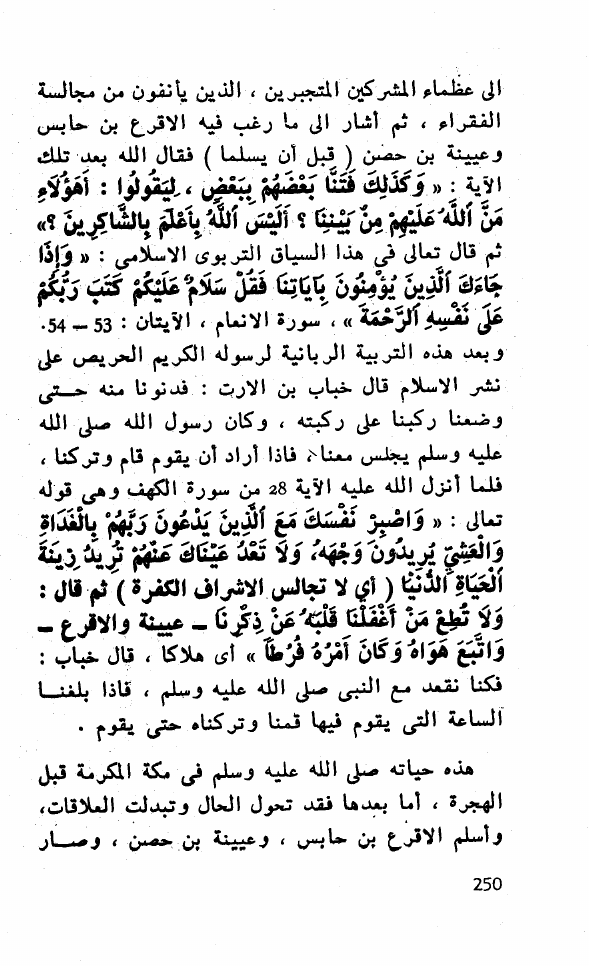 الى عظماء المشركين المتجبرين ، الذين يأنفون من مجالسة
الفقراء ، ثم أشار الى ما رغب فيه الاقرع بن حابس
وعيينة بن حصن ( قبل أن يسلما ) فقال الله بعد تلك
الآية : « وَكَذَلِكَ فَتَنَّا بَعْضَهُمْ بِبَعْضٍ ، لِيَقُولُوا : أَهَؤُلَاءِ
مَنَّ اللَّهُ عَلَيْهِمْ مِنْ بَيْنِنَا ؟ أَلَيْسَ اللَّهُ بِأَعْلَمَ بِالشَّاكِرِينَ ؟»
ثم قال تعالى فى هذا السياق التربوى الاسلامي : « وَإِذَا
جَاءَكَ الَّذِينَ يُؤْمِنُونَ بِآيَاتِنَا فَقُلْ سَلَامٌ عَلَيْكُمْ كَتَبَ رَبُّكُمْ
عَلَى نَفْسِهِ الرَّحْمَةَ » ، سورة الانعام ، الآيتان : 53 — 54.
وبعد هذه التربية الربانية لرسوله الكريم الحريص على
نشر الاسلام قال خباب بن الارت : فدنونا منه حــتى
وضعنا ركبنا على ركبته ، وكان رسول الله صلى الله
عليه وسلم يجلس معنا، فاذا أراد أن يقوم قام وتركنا ،
فلما أنزل الله عليه الآية 28 من سورة الكهف وهى قوله
تعالى : « وَاصْبِرْ نَفْسَكَ مَعَ الَّذِينَ يَدْعُونَ رَبَّهُمْ بِالْغَدَاةِ
وَالْعَشِيِّ يُرِيدُونَ وَجْهَهُ، وَلَا تَعْدُ عَيْنَاكَ عَنْهُمْ تُرِيدُ زِينَةَ
الْحَيَاةِ الدُّنْيَا ( أي لا تجالس الاشراف الكفرة ) ثم قال :
وَلَا تُطِعْ مَنْ أَغْفَلْنَا قَلْبَهُ عَنْ ذِكْرِنَا — عيينة والاقرع —
وَاتَّبَعَ هَوَاهُ وَكَانَ أَمْرُهُ فُرُطاً » أى هلاكا ، قال خباب :
فكنا نقعد مع النبى صلى الله عليه وسلم ، فاذا بلغنــا
الساعة التى يقوم فيها قمنا وتركناه حتى يقوم .
هذه حياته صلى الله عليه وسلم فى مكة المكرمة قبل
الهجرة ، أما بعدها فقد تحول الحال وتبدلت العلاقات،
وأسلم الاقرع بن حابس ، وعيينة بن حصن ، وصــار
250